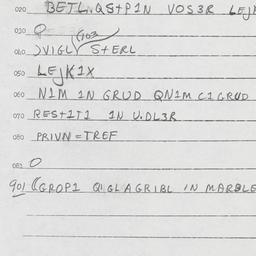 020 BETL. QS+P1N VOS3R LEJK
030 O
G03
040 )VIGLY S+ERL
050 LEJK1X
060 N1M 1N GRUD QN1M C1GRUD
070 RES+1T1 1N U.DL3R
080 PRIVN = TREF
085 O
901 ((GROP1 Q1GLAGRIBL IN MARBLE